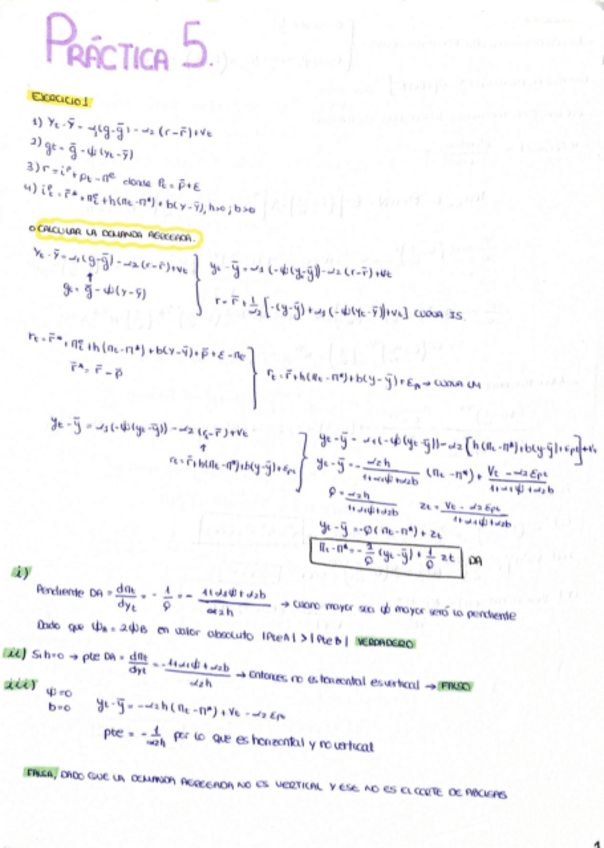 PRÁCTICA 5.
EXERCICIO 1
1) Yt - Ȳ = α1(g - ḡ) - α2(r - r̄) + Vt
2) gt = ḡ - ψ(Yt - ȳ)
3) r = i^p + pt - π^e donde Pt = p̄ + ε
4) i^p_t = r̄* + π^e_t + h(πt - π*) + b(y - ȳ), h>0; b>0
o CALCULAR LA DEMANDA AGREGADA.
Yt - ȳ = α1(g - ḡ) - α2(r - r̄) + Vt
gt = ḡ - ψ(y - ȳ)
yt - ȳ = α1(-ψ(yt - ȳ)) - α2(r - r̄) + Vt
r = r̄ + 1/α2 [-(y - ȳ) + α1(-ψ(yt - ȳ)) + Vt] CURVA IS
rt = r̄* + π^e_t + h(πt - π*) + b(y - ȳ) + p̄ + ε - πe
r̄* = r̄ - p̄
rt = r̄ + h(πt - π*) + b(y - ȳ) + εpt → CURVA LM
yt - ȳ = α1(-ψ(yt - ȳ)) - α2(rt - r̄) + Vt
rt = r̄ + h(πt - π*) + b(y - ȳ) + εpt
yt - ȳ = α1(-ψ(yt - ȳ)) - α2[h(πt - π*) + b(y - ȳ) + εpt] + Vt
yt - ȳ = - α2h / 1+α1ψ+α2b (πt - π*) + Vt - α2εpt / 1+α1ψ+α2b
φ = α2h / 1+α1ψ+α2b zt = Vt - α2εpt / 1+α1ψ+α2b
yt - ȳ = -φ(πt - π*) + zt
πt - π* = - 1/φ (yt - ȳ) + 1/φ zt DA
i)
Pendiente DA = dπt/dyt = - 1/φ = - 1+α1ψ+α2b / α2h → cuanto mayor sea ψ mayor será la pendiente
Dado que ψA = 2ψB en valor absoluto |Pte A| > |Pte B| VERDADERO
ii) Si h=0 → pte DA = dπt/dyt = - 1+α1ψ+α2b / α2h → Entonces no es horizontal es vertical → FALSO
iii) ψ=0
b=0 yt - ȳ = -α2h(πt - π*) + Vt - α2εpt
pte = - 1/α2h por lo que es horizontal y no vertical
FALSA, DADO QUE LA DEMANDA AGREGADA NO ES VERTICAL Y ESE NO ES EL CORTE DE ABCISAS
1